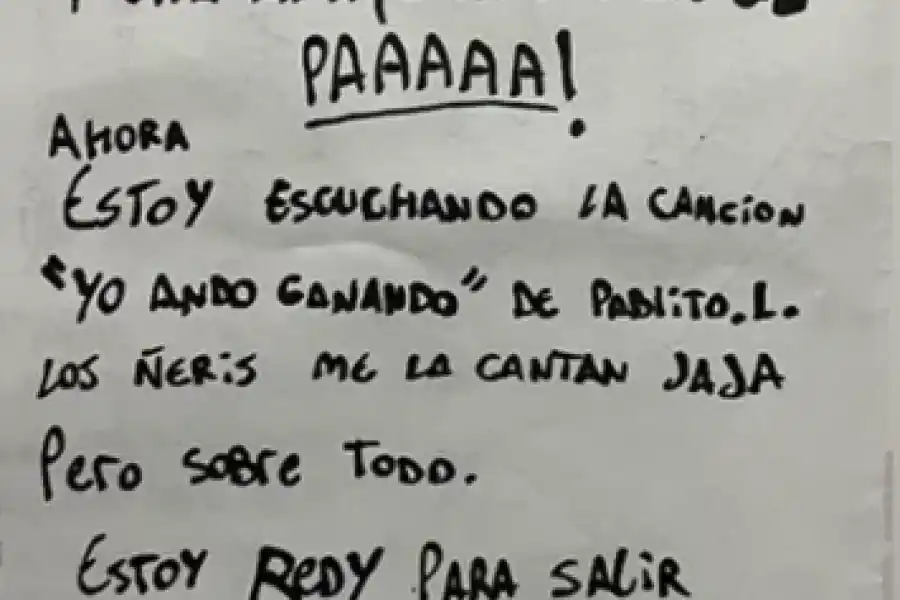 PAAAAA!
AHORA
ESTOY ESCUCHANDO LA CANCION
"YO ANDO GANANDO" DE PABLITO.L.
LOS ÑERIS ME LA CANTAN JAJA
Pero SOBRE TODO.
ESTOY REDY PARA SALIR